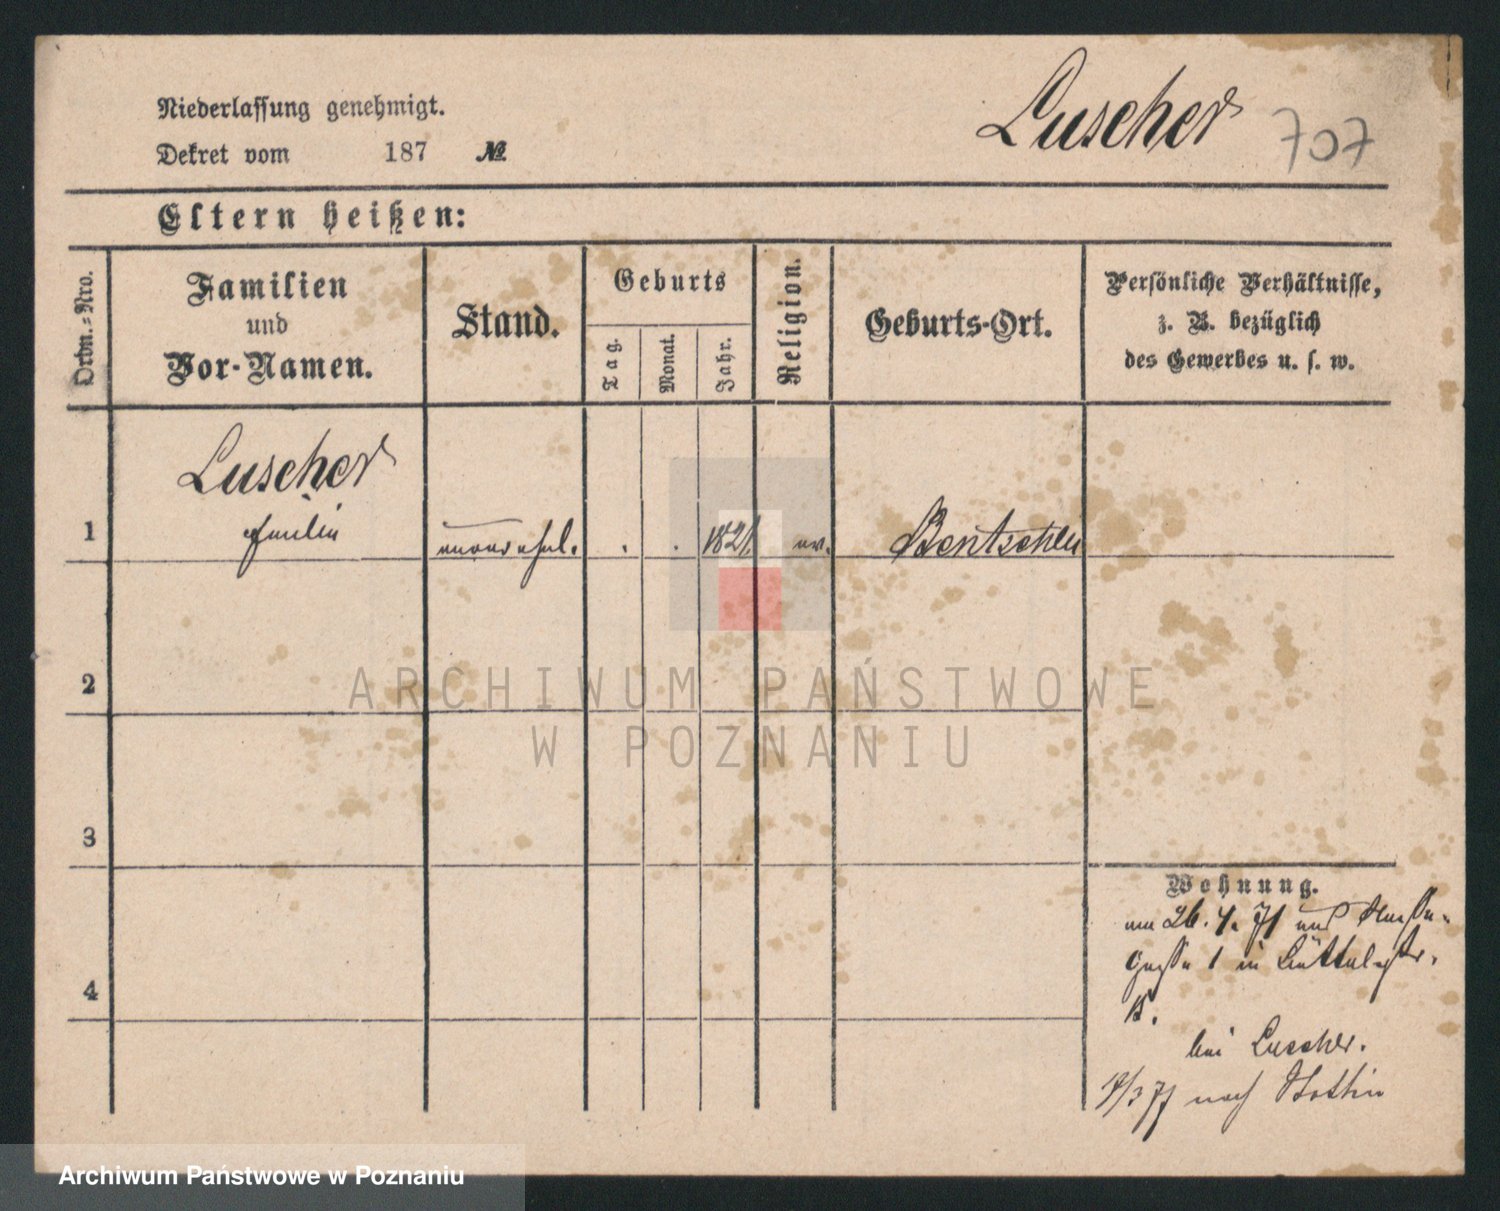 Niederlassung genehmigt.
Dekret vom 187 №
Luscher 707
Eltern heißen:
Ordn.-Nro.
Familien
und
Vor-Namen.
Stand.
Geburts
Tag.
Monat.
Jahr.
Religion.
Geburts-Ort.
Persönliche Verhältnisse,
z. B. bezüglich
des Gewerbes u. s. w.
Luscher
1 . . 1821 ev. Bentschen
2
3
4
Wohnung.
26. 4. 71
1 in
15.
bei Luscher.
nach Stettin
ARCHIWUM PAŃSTWOWE
W POZNANIU
Archiwum Państwowe w Poznaniu